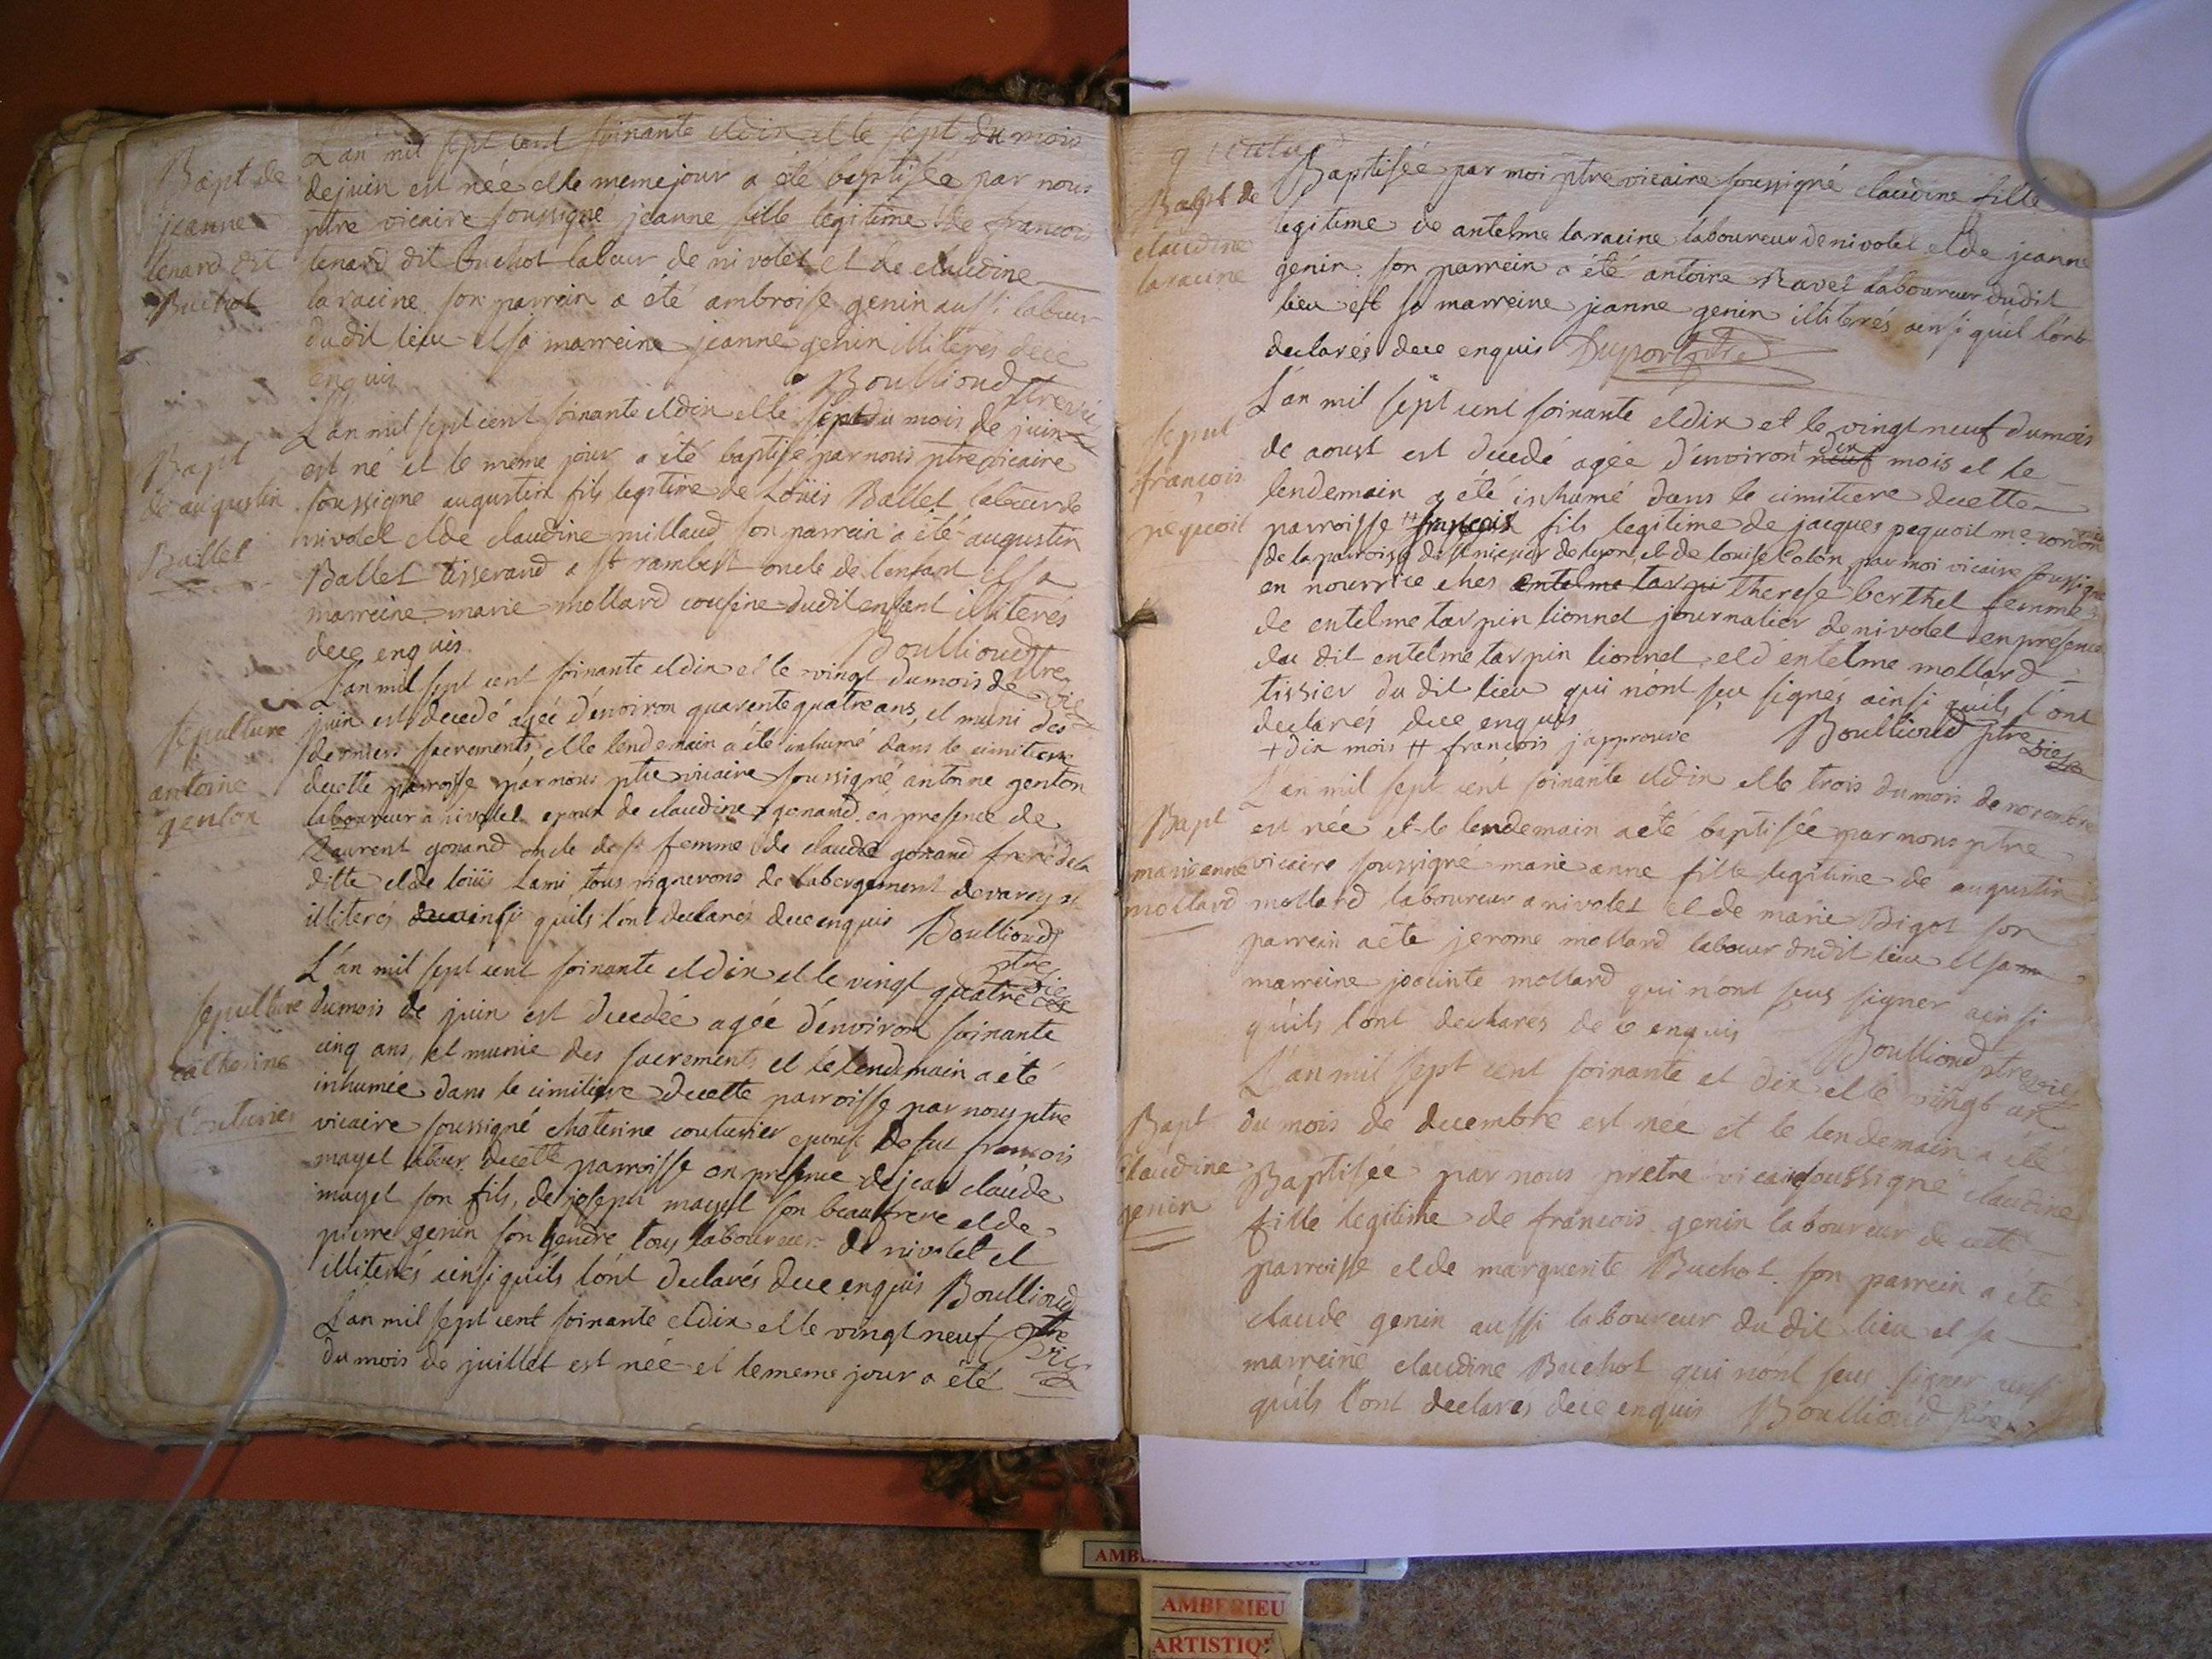 Bapt de
jeanne
lenard dit
Buchot
L'an mil sept cent soixante et dix et le sept du mois
de juin est née et le meme jour a été baptisée par nous
ptre vicaire soussigné jeanne fille legitime de francois
lenard dit buchot labour de nivolet et de claudine
laracine son parrein a été ambroise genin aussi labour
du dit lieu et sa marreine jeanne genin illiterés de ce
enquis Boullioud ptre vic
Bapt
de augustin
Ballet
L'an mil sept cent soixante et dix et le sept du mois de juin
est né et le meme jour a été baptisé par nous ptre vicaire
soussigné augustin fils legitime de Loüis Ballet labour de
nivolet et de claudine millaud son parrein a été augustin
Ballet tisserand a st rambert oncle de l'enfant et sa
marreine marie mollard cousine du dit enfant illiterés
de ce enquis. Boullioud ptre vic
sepulture
antoine
genton
L'an mil sept cent soixante et dix et le vingt du mois de
juin est decedé agée d'environ quarente quatre ans, et muni des
derniers sacrements, et le lendemain a été inhumé dans le cimitiere
de cette parroisse par nous ptre vicaire soussigné antoine genton
laboureur a nivolet epoux de claudine gonand en presence de
Laurent gonand oncle de sa femme de claude gonand frere de la
ditte et de loüis Lami tous vignerons de l'abergement de varey et
illiterés ainsi qu'ils l'ont declarés de ce enquis Boullioud
ptre vic
sepulture
catherine
Couturier
L'an mil sept cent soixante et dix et le vingt quatre
du mois de juin est decedée agée d'environ soixante
cinq ans, et munie des sacrements et le lendemain a été
inhumée dans le cimitiere de cette parroisse par nous ptre
vicaire soussigné chaterine couturier epouse de feu francois
mayet labour de cette parroisse en presence de jean claude
mayet son fils, de joseph mayet son beaufrere et de
pierre genin son gendre tous laboureurs de nivolet et
illiterés ainsi qu'ils l'ont declarés de ce enquis Boullioud
ptre vic
L'an mil sept cent soixante et dix et le vingt neuf
du mois de juillet est née et le meme jour a été
Bapt de
claudine
laracine
Baptisée par moi ptre vicaire soussigné claudine fille
legitime de antelme laracine laboureur de nivolet et de jeanne
genin. son parrein a été antoine Ravet laboureur du dit
lieu et sa marreine jeanne genin illiterés ainsi qu'il l'ont
declarés de ce enquis Duport ptre
sepul
françois
pequoit
L'an mil sept cent soixante et dix et le vingt neuf du mois
de aoust est decedé agée d'environ + neuf dix mois et le
lendemain a été inhumé dans le cimitiere de cette
parroisse ++ françois fils legitime de jacques pequoit me
de la parroisse de st nizier de lyon, et de louise Colon par moi vicaire soussigné
en nourrice ches antelme tarpi therese berthet femme
de entelme tarpin lionnet journalier de nivolet en presence
du dit entelme tarpin lionnet, et d'entelme mollard
tissier du dit lieu qui n'ont sçu signés ainsi qu'ils l'ont
declarés de ce enquis Boullioud ptre vic
+ dix mois ++ francois j'approuve
Bapt
marie anne
mollard
L'an mil sept cent soixante et dix et le trois du mois de novembre
est née et le lendemain a été baptisée par nous ptre
vicaire soussigné marie anne fille legitime de augustin
mollard laboureur a nivolet et de marie Bigot son
parrein a été jerome mollard labour du dit lieu et sa
marreine jacinte mollard qui n'ont sçus signer ainsi
qu'ils l'ont declarés de ce enquis Boullioud ptre vic
Bapt
Claudine
genin
L'an mil sept cent soixante et dix et le vingt un
du mois de decembre est née et le lendemain a été
Baptisée par nous pretre vicaire soussigné claudine
fille legitime de francois genin laboureur de cette
parroisse et de marguerite Buchot. son parrein a été
claude genin aussi laboureur du dit lieu et sa
marreine claudine Buchot qui nont sçus signer ainsi
qu'ils l'ont declarés de ce enquis Boullioud ptre
AMBERIEU
ARTISTIQ